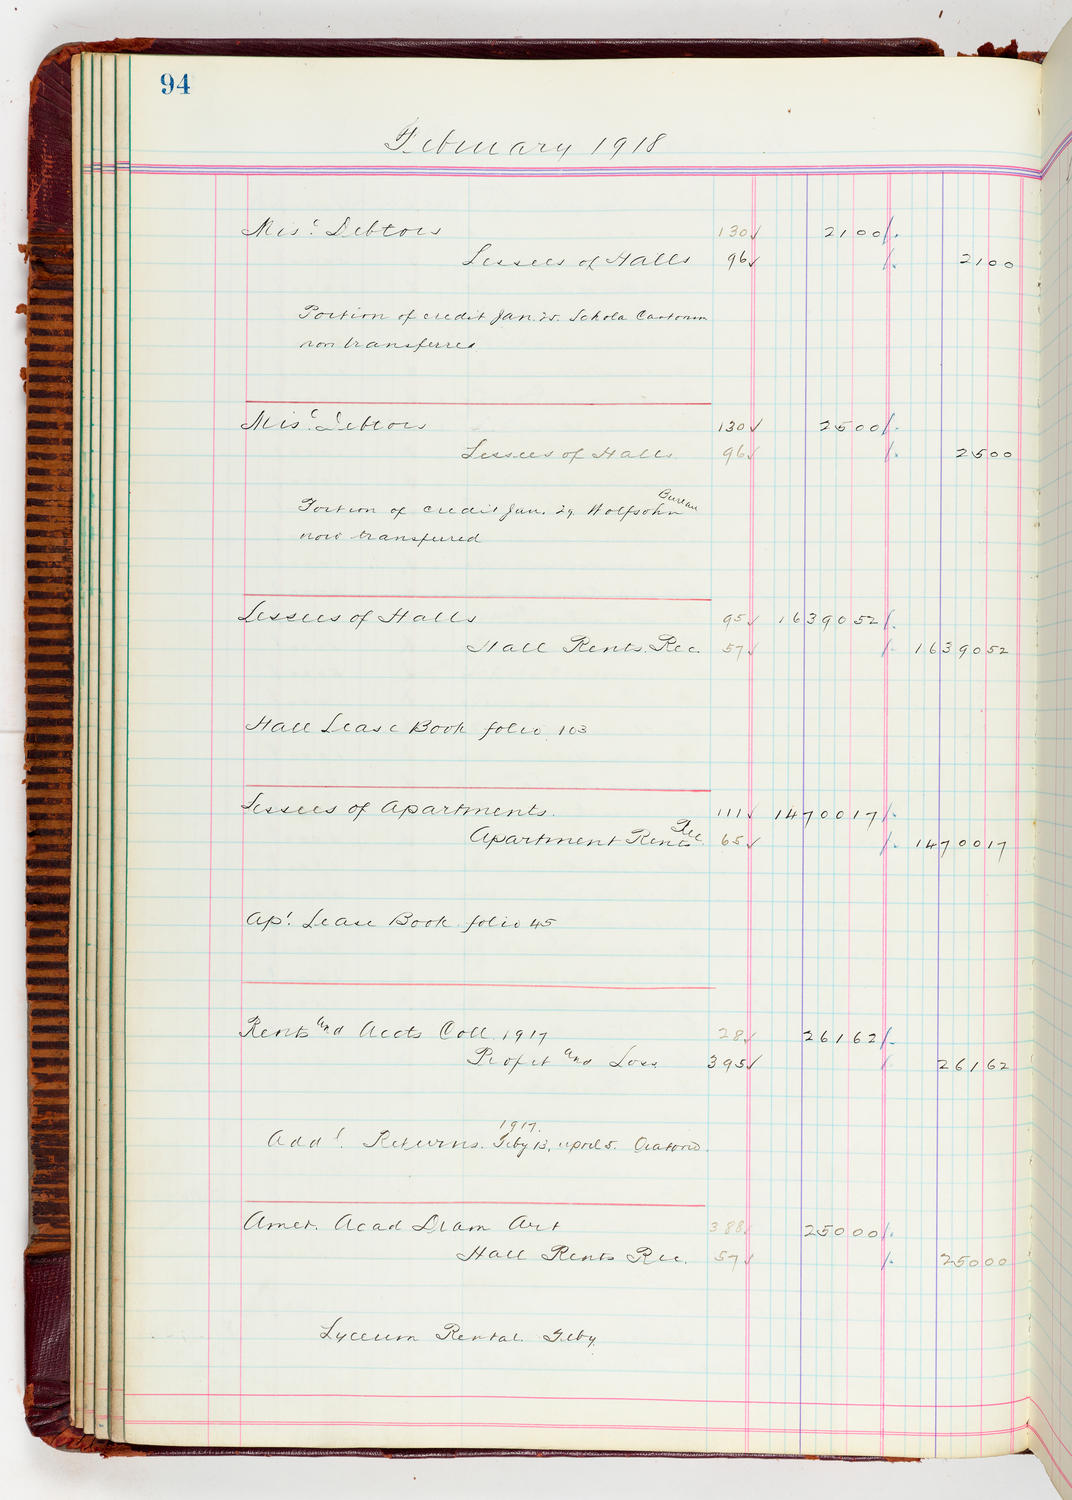 94
February 1918
Misc. Debtors 130 ✓ 2100
Lessees of Halls 96 ✓ 2100
Portion of credit Jan. 25. Schola Cantorum
now transferred
Misc. Debtors 130 ✓ 2500
Lessees of Halls 96 ✓ 2500
Portion of credit Jan. 29 Wolfsohn Bureau
now transferred
Lessees of Halls 95 ✓ 1639052
Hall Rents Rec. 57 ✓ 1639052
Hall Lease Book folio 103
Lessees of Apartments. 111 ✓ 1470017
Apartment Rents Rec 65 ✓ 1470017
Apt. Lease Book folio 45
Rents and Accts Coll. 1917 28 ✓ 26162
Profit and Loss 395 ✓ 26162
Addl. Returns. Feby 13, 1917. April 5. Oratorio.
Amer. Acad Dram Art 388 ✓ 25000
Hall Rents Rec. 57 ✓ 25000
Lyceum Rental Feby.